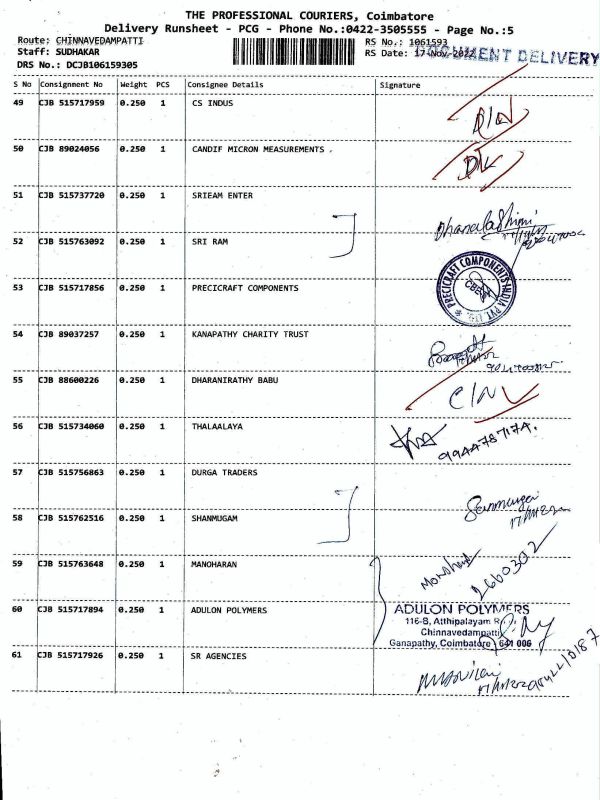 THE PROFESSIONAL COURIERS, Coimbatore
Delivery Runsheet - PCG - Phone No.:0422-3505555 - Page No.:5
Route: CHINNAVEDAMPATTI
RS No.: 1061593
Staff: SUDHAKAR
RS Date: 17-Nov-2022
DOCUMENT DELIVERY
DRS No.: DCJB106159305
S No Consignment No Weight PCS Consignee Details Signature
49 CJB 515717959 0.250 1 CS INDUS
50 CJB 89024056 0.250 1 CANDIF MICRON MEASUREMENTS .
51 CJB 515737720 0.250 1 SRIEAM ENTER
Dhanalakshmi
52 CJB 515763092 0.250 1 SRI RAM
53 CJB 515717856 0.250 1 PRECICRAFT COMPONENTS
PRECICRAFT COMPONENTS INDIA PVT. LTD.
CBE
54 CJB 89037257 0.250 1 KANAPATHY CHARITY TRUST
55 CJB 88600226 0.250 1 DHARANIRATHY BABU
56 CJB 515734060 0.250 1 THALAALAYA
57 CJB 515756863 0.250 1 DURGA TRADERS
58 CJB 515762516 0.250 1 SHANMUGAM
Sanmuga
59 CJB 515763648 0.250 1 MANOHARAN
2660302
60 CJB 515717894 0.250 1 ADULON POLYMERS
ADULON POLYMERS
116-B, Atthipalayam
Chinnavedampatti
Ganapathy, Coimbatore 641 006
61 CJB 515717926 0.250 1 SR AGENCIES